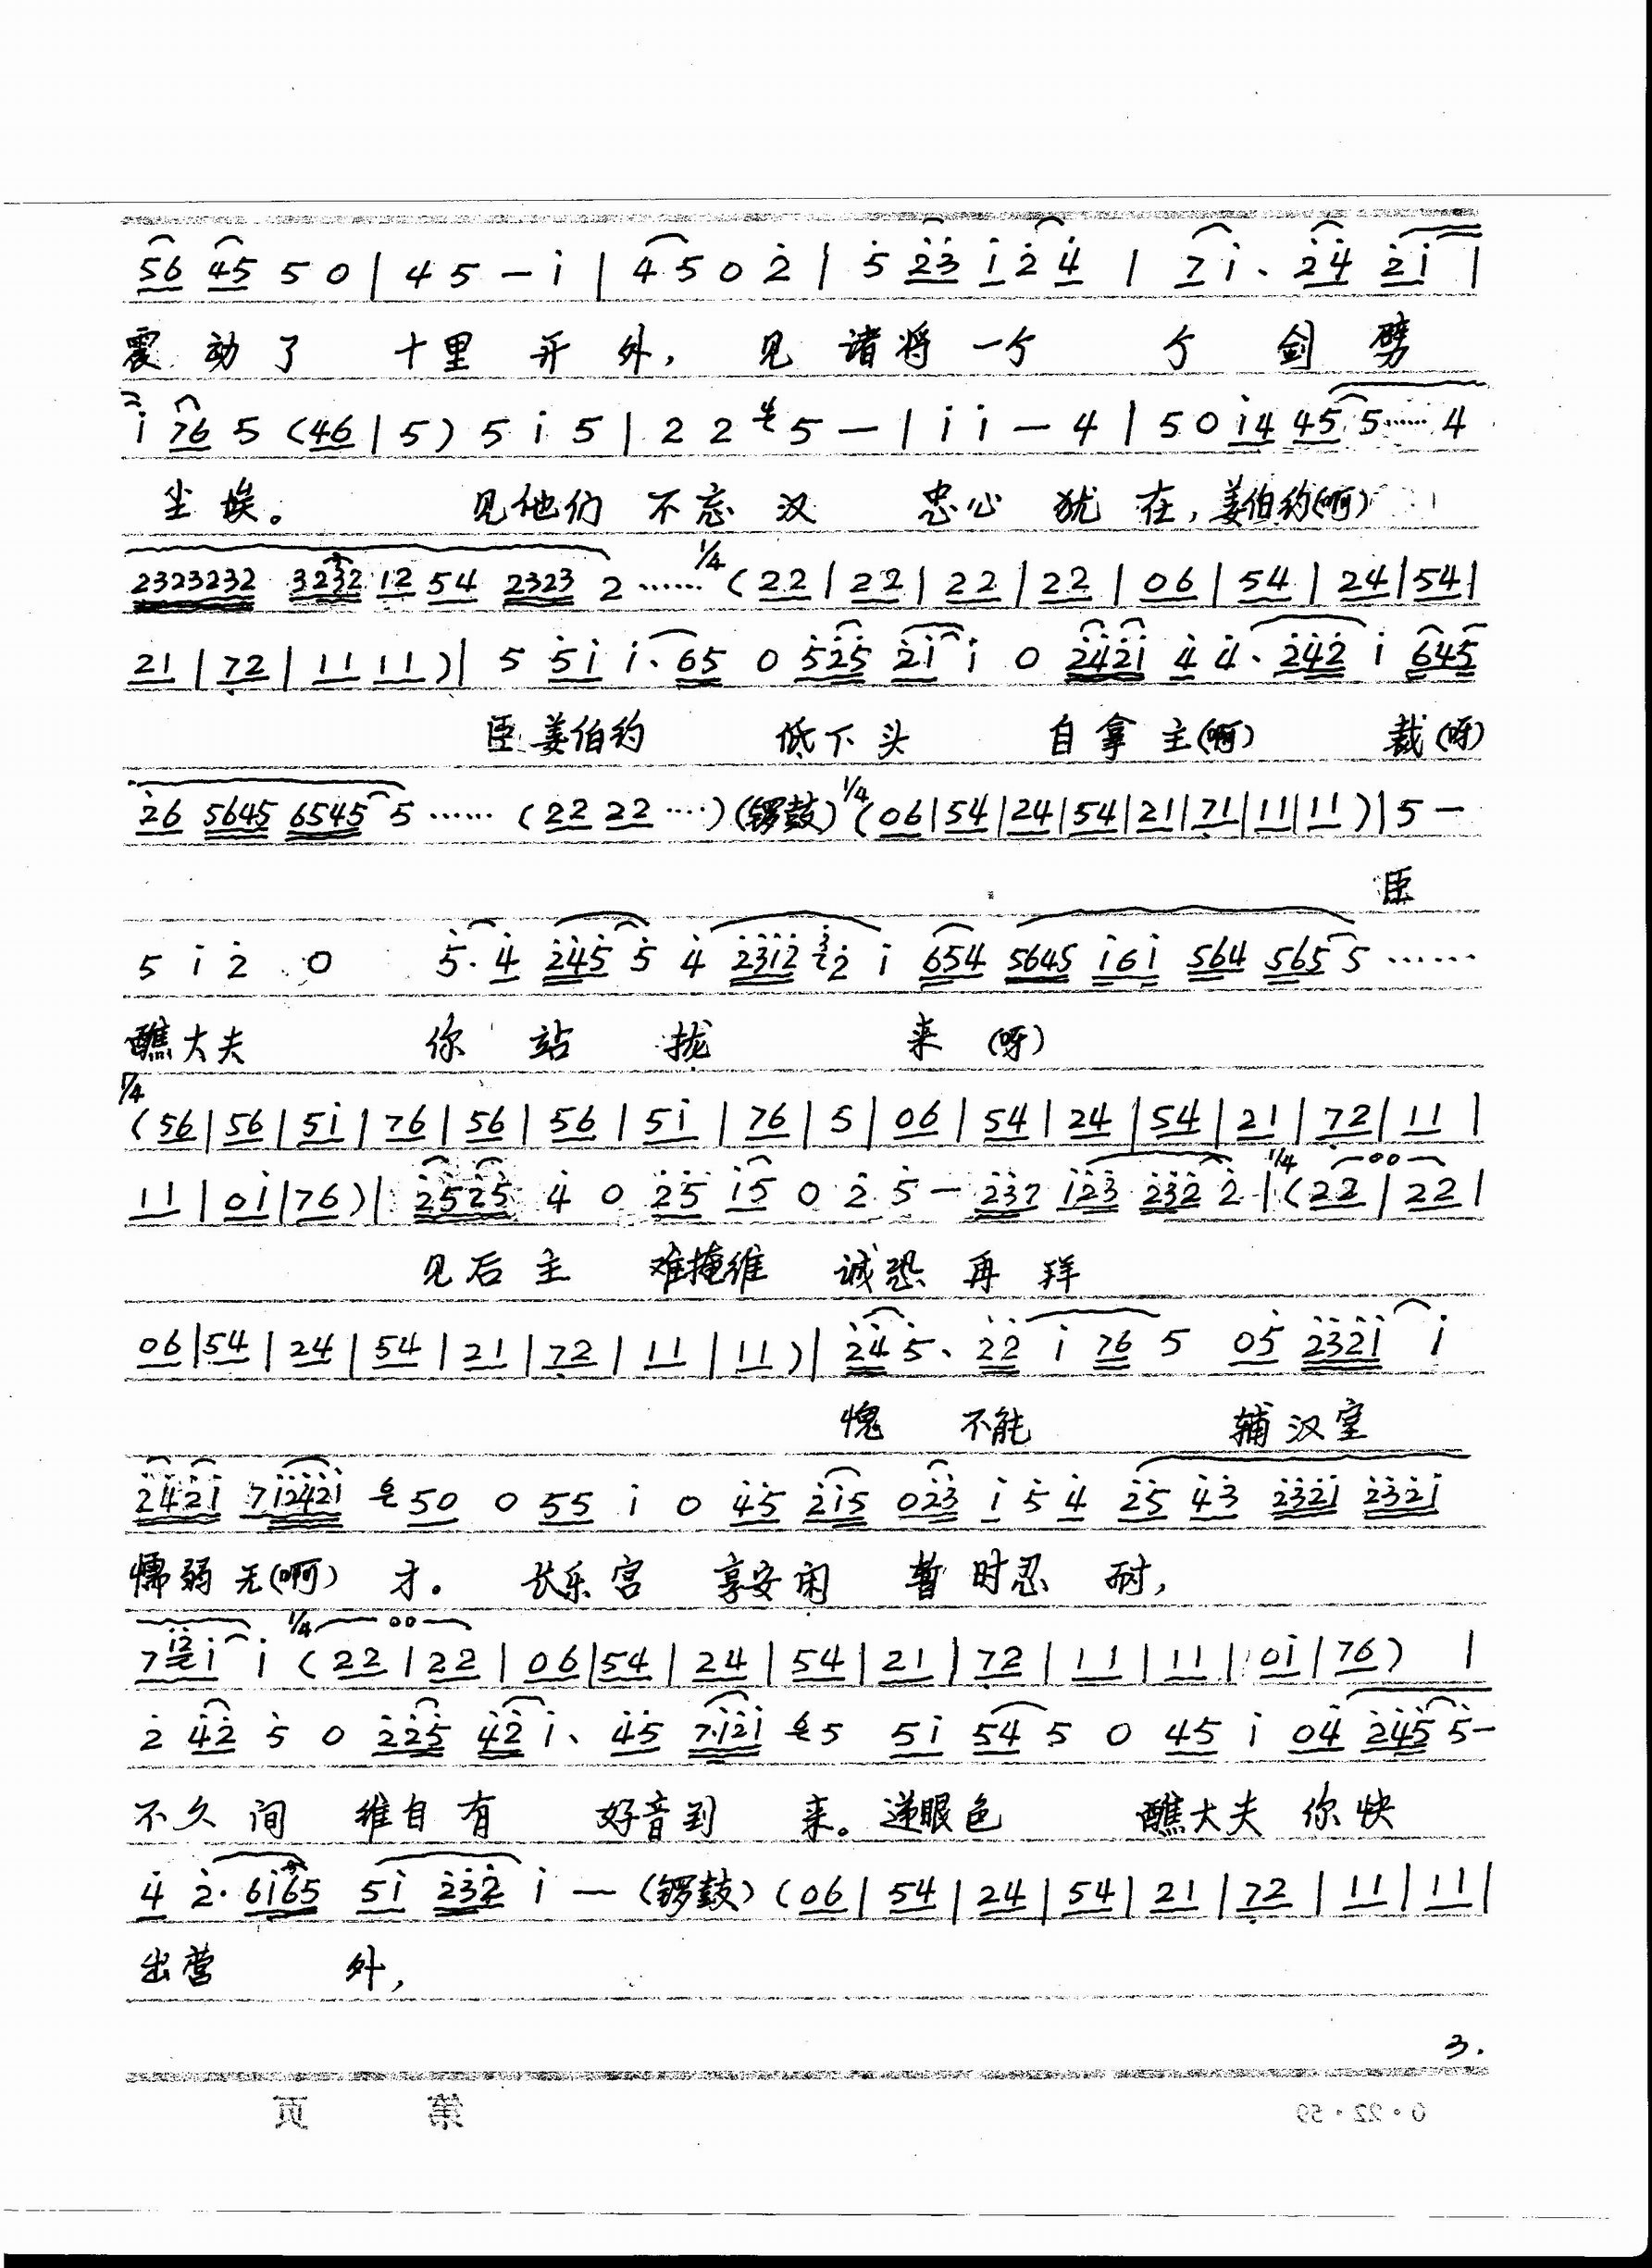 56 45 5 0 | 4 5 — i | 4 5 0 2 | 5 23 i 2 4 | 7 i. 24 2i |
震动了 十里开外, 见诸将一个 个 剑劈
i 76 5 (46 | 5) 5 i 5 | 2 2 4 5 — | i i — 4 | 5 0 i4 45 5…… 4
尘埃。 见他们 不忘汉 忠心犹在, 姜伯约(啊)
2323232 3232 12 54 2323 2 …… 1/4 (22 | 22 | 22 | 22 | 06 | 54 | 24 | 54 |
21 | 72 | 11 11) | 5 5i i. 65 0 525 2i i 0 242i 4 4. 242 i 645
臣姜伯约 低下头 自拿主(啊) 裁(呀)
26 5645 6545 5 …… (22 22 …) (锣鼓) 1/4 (06 | 54 | 24 | 54 | 21 | 71 | 11 | 11) | 5 —
臣
5 i 2 0 5. 4 245 5 4 23i2 3 2 i 654 5645 i6i 564 565 5 ……
醮大夫 你站拢 来(呀)
1/4
(56 | 56 | 5i | 76 | 56 | 56 | 5i | 76 | 5 | 06 | 54 | 24 | 54 | 21 | 72 | 11 |
11 | 0i | 76) | 2525 4 0 25 i5 0 2 5 — 237 i23 232 2 | 1/4 (22 | 22 |
见后主 难掩维 诚恐再拜
06 | 54 | 24 | 54 | 21 | 72 | 11 | 11) | 24 5. 22 i 76 5 05 232i i
愧 不能 辅汉室
242i 7i242i 6 50 0 55 i 0 45 2i5 023 i 5 4 25 43 232i 232i
懦弱无(啊) 才。 长乐宫 享安闲 暂时忍耐,
7 i2 i i 1/4 (22 | 22 | 06 | 54 | 24 | 54 | 21 | 72 | 11 | 11 | 0i | 76) |
2 42 5 0 225 42 i. 45 7.i2i 6 5 5i 54 5 0 45 i 04 245 5—
不久间 维自有 好音到 来。递眼色 醮大夫你快
4 2. 6i65 5i 232 i — (锣鼓) (06 | 54 | 24 | 54 | 21 | 72 | 11 | 11 |
出营 外,
3.
第 页
0·22·59